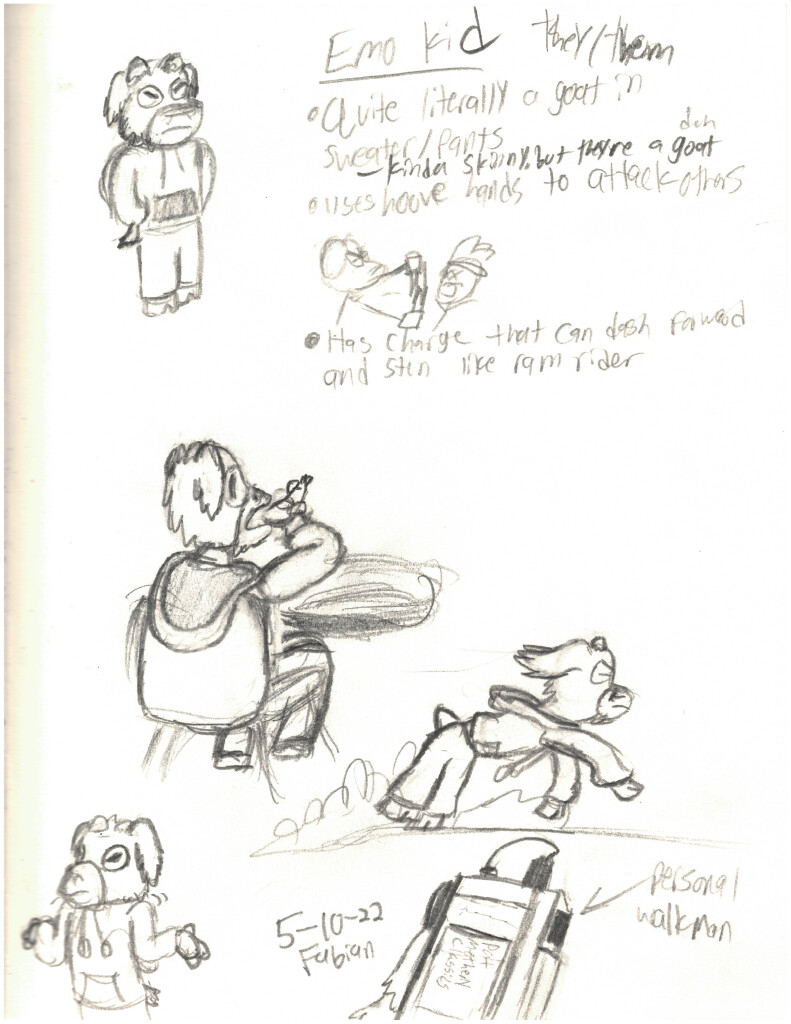 Emo kid they/them
• Quite literally a goat in
sweater/pants
duh
- kinda skinny, but they're a goat
• uses hoove hands to attack others
• Has charge that can dash forward
and stun like ram rider
personal
walkman
5-10-22
Fabian
Rat
Kitchen
Classics